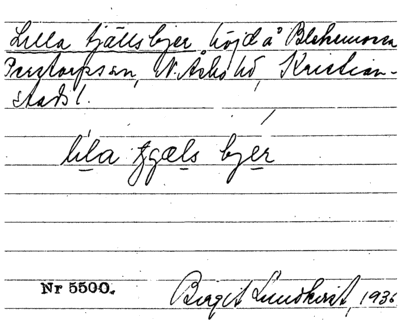 Lilla tjällsbjer höjd å Blekemossa
Perstorps sn, N. Åsbo hd, Kristian-
stads l.
lila tjgæls bjer
Nr 5500.
Birgit Lundkvist, 1936